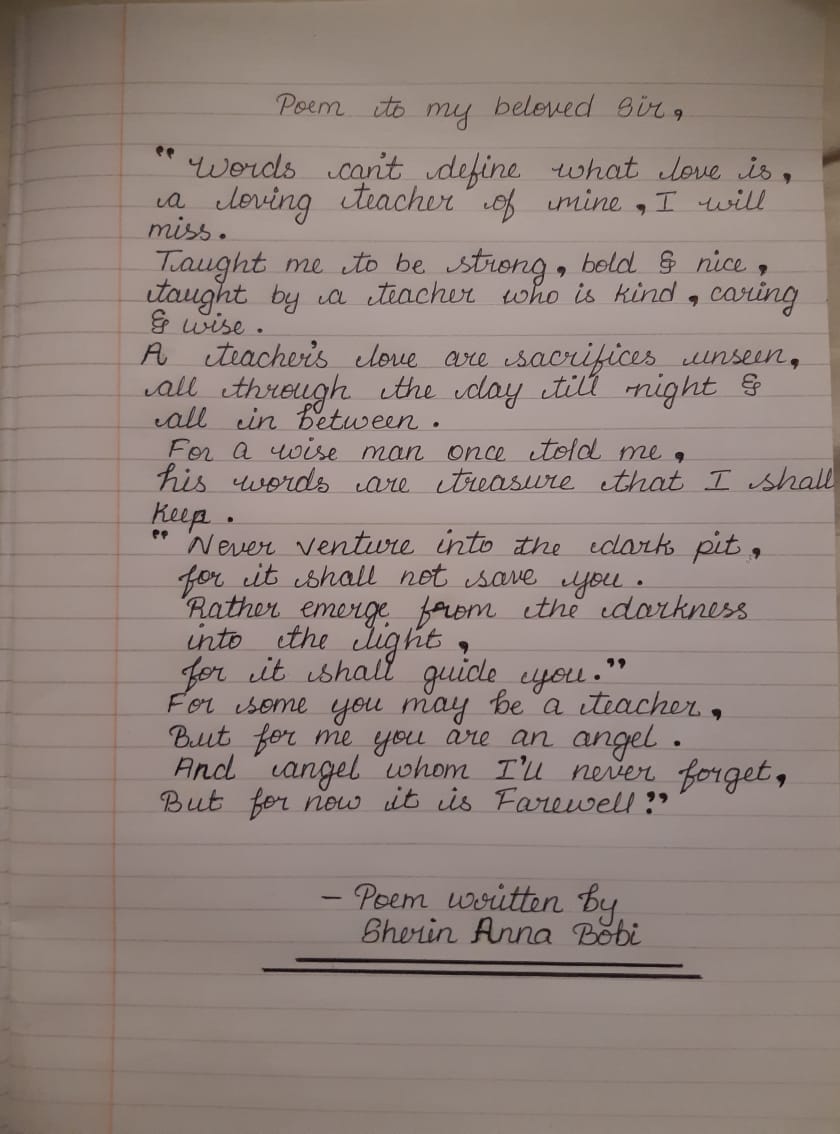 Poem to my beloved Sir,
"Words can't define what love is,
a loving teacher of mine, I will
miss.
Taught me to be strong, bold & nice,
taught by a teacher who is kind, caring
& wise.
A teacher's love are sacrifices unseen,
all through the day till night &
all in between.
For a wise man once told me,
his words are treasure that I shall
keep.
"Never venture into the dark pit,
for it shall not save you.
Rather emerge from the darkness
into the light,
for it shall guide you."
For some you may be a teacher,
But for me you are an angel.
And angel whom I'll never forget,
But for now it is Farewell!"
- Poem written by
Sherin Anna Bobi